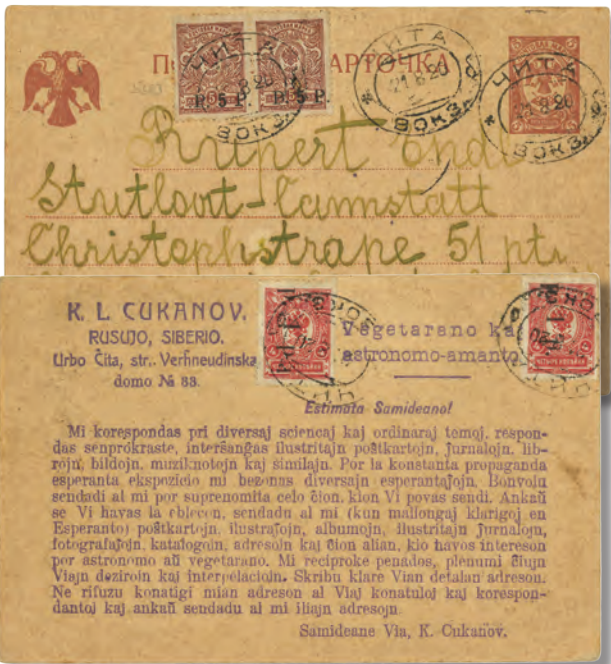 ПО АРТОЧКА
ЧИТА
ВОКЗ
ЧИТА
21.8.20
ВОКЗ
ЧИТА
ВОКЗ
Rupert
Cannstatt
Christophstraße 51
K. L. CUKANOV.
RUSUJO, SIBERIO.
Urbo Ĉita, str. Verĥneudinska
domo № 88.
Vegetarano ka
astronomo-amanto
Estimata Samideano!
Mi korespondas pri diversaj sciencaj kaj ordinaraj temoj, respon-
das senprokraste, interŝanĝas ilustritajn poŝtkartojn, ĵurnalojn, lib-
rojn, bildojn, muziknotojn kaj similajn. Por la konstanta propaganda
esperanta ekspozicio mi bezonas diversajn esperantaĵojn. Bonvolu
sendadi al mi por suprenomita celo ĉion, kion Vi povas sendi. Ankaŭ
se Vi havas la eblecon, sendadu al mi (kun mallongaj klarigoj en
Esperanto) poŝtkartojn, ilustraĵojn, albumojn, ilustritajn ĵurnalojn,
fotografaĵojn, katalogojn, adresojn kaj ĉion alian, kio havos intereson
por astronomo aŭ vegetarano. Mi reciproke penados, plenumi ĉiujn
Viajn dezirojn kaj interpelaciojn. Skribu klare Vian detalan adreson.
Ne rifuzu konatigi mian adreson al Viaj konatuloj kaj korespon-
dantoj kaj ankaŭ sendadu al mi iliajn adresojn.
Samideane Via, K. Cukanov.